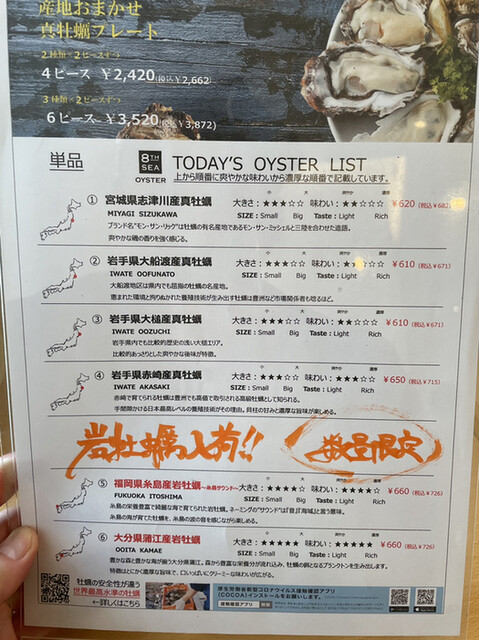 産地おまかせ
真牡蠣プレート
2種類×2ピースずつ
4ピース ¥2,420(税込¥2,662)
3種類×2ピースずつ
6ピース ¥3,520(税込¥3,872)
単品
8TH SEA OYSTER
TODAY'S OYSTER LIST
上から順番に爽やかな味わいから濃厚な順番で記載しています。
① 宮城県志津川産真牡蠣 大きさ:★★★☆☆ 味わい:★★☆☆☆ ¥620(税込¥682)
MIYAGI SIZUKAWA SIZE:Small Big Taste:Light Rich
ブランド名“モン・サン・リック”は牡蠣の有名産地であるモン・サン・ミッシェルと三陸を合わせた造語。
爽やかな磯の香りを強く感じる。
② 岩手県大船渡産真牡蠣 大きさ:★★★☆☆ 味わい:★★☆☆☆ ¥610(税込¥671)
IWATE OOFUNATO SIZE:Small Big Taste:Light Rich
大船渡地区は県内でも屈指の牡蠣の名産地。
恵まれた環境と拘りぬかれた養殖技術が生み出す牡蠣は豊洲など市場関係者も唸るほど。
③ 岩手県大槌産真牡蠣 大きさ:★★★☆☆ 味わい:★★☆☆☆ ¥610(税込¥671)
IWATE OOZUCHI SIZE:Small Big Taste:Light Rich
岩手県内でも比較的歴史の浅い大槌エリア。
比較的あっさりとした爽やかな後味が特徴。
④ 岩手県赤崎産真牡蠣 大きさ:★★★★☆ 味わい:★★★☆☆ ¥650(税込¥715)
IWATE AKASAKI SIZE:Small Big Taste:Light Rich
赤崎で育てられた牡蠣は豊洲でも高値で取引される高級牡蠣として知られる。
手間隙かける日本最高レベルの養殖技術がその理由。貝柱の甘みと濃厚な旨味が楽しめる。
岩牡蠣入荷!! 数量限定
⑤ 福岡県糸島産岩牡蠣～糸島サウンド～ 大きさ:★★★★☆ 味わい:★★★★☆ ¥660(税込¥726)
FUKUOKA ITOSHIMA SIZE:Small Big Taste:Light Rich
糸島の栄養豊富で綺麗な海で育てられた岩牡蠣。ネーミングの“サウンド”は「音」「海域」と言う意味。
糸島の海が育てた牡蠣を、糸島の波の音を感じながら楽しめる。
⑥ 大分県蒲江産岩牡蠣 大きさ:★★★★☆ 味わい:★★★★★ ¥660(税込¥726)
OOITA KAMAE SIZE:Small Big Taste:Light Rich
豊かな森と豊かな海が揃う大分県蒲江。森から豊富な栄養分が流れ込み、牡蠣の餌となるプランクトンを生み出します。
特徴はとにかく濃厚な旨味で、口いっぱいにクリーミーな味わいが広がる。
牡蠣の安全性が違う
世界最高水準の牡蠣
←詳しくはこちら
厚生労働省新型コロナウイルス接触確認アプリ
(COCOA)インストールをお願いします。
接触確認アプリ